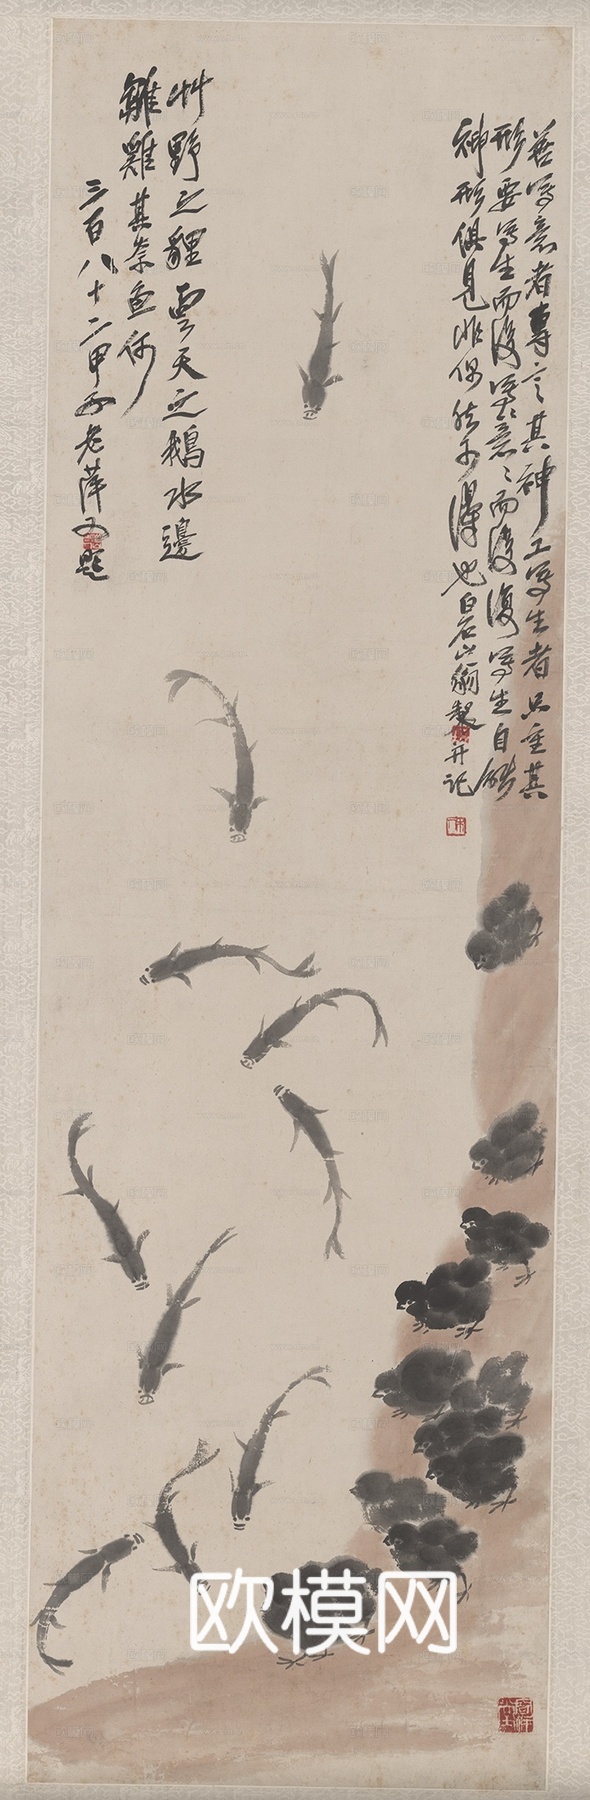 善写意者專言其神工写生者只重其
形要写生而後写意写意而後復写生自能
神形俱見非偶然可得也白石山翁製并記
艸野之貍雲天之鵝水邊
雛雞其奈魚何
三百八十二甲子老萍又題
欧模网